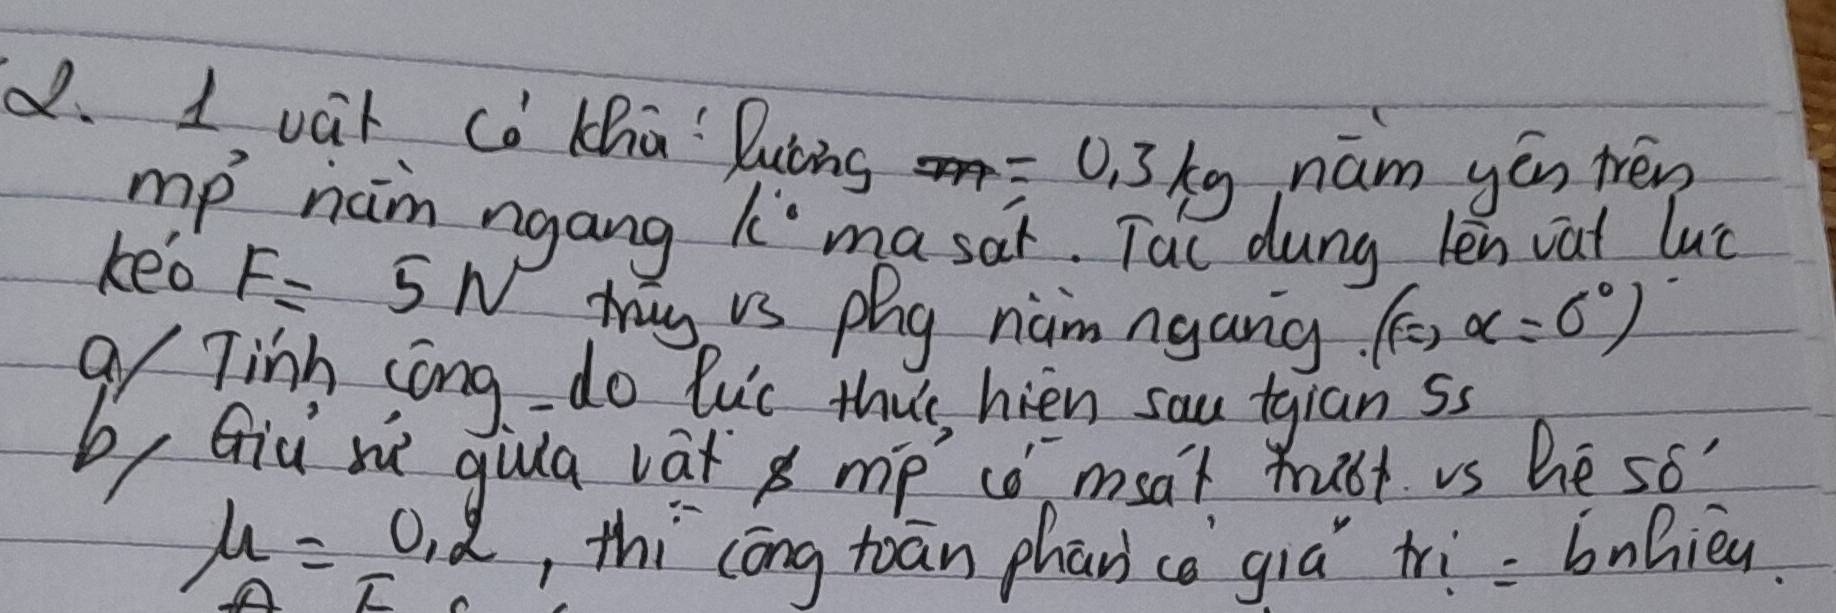 2. 1 vật có khối lượng = 0,3 kg nằm yên trên
mp nằm ngang k° ma sát. Tác dụng lên vật lực
kéo F = 5 N vs phg nằm ngang. (<=> α = 0°)
a/ Tính công do lực thực hiện sau tgian 5s
b/ Giả sử giữa vật & mp có msát trượt vs hệ số
μ = 0,2, thì công toàn phần có giá trị = bnhiêu.